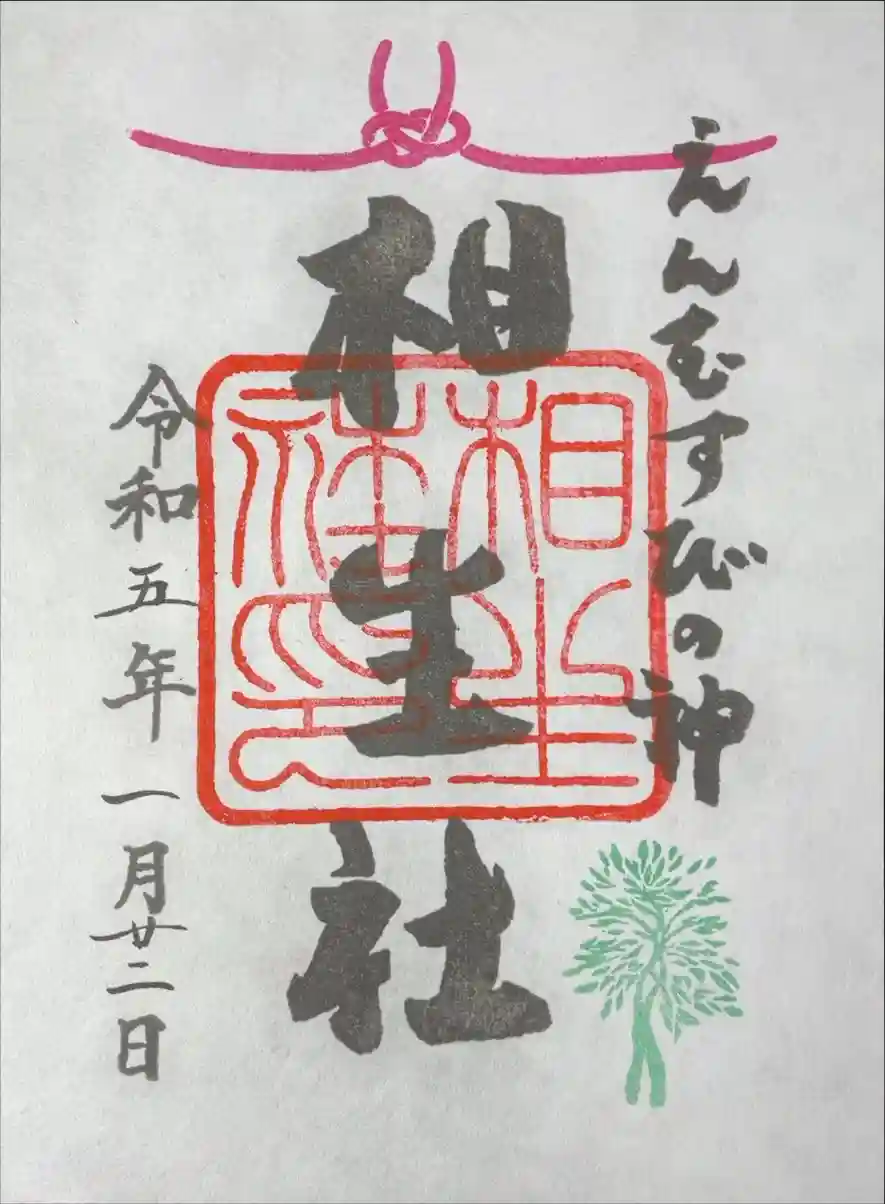 えんむすびの神
相生社
相生社印
令和五年一月廿二日